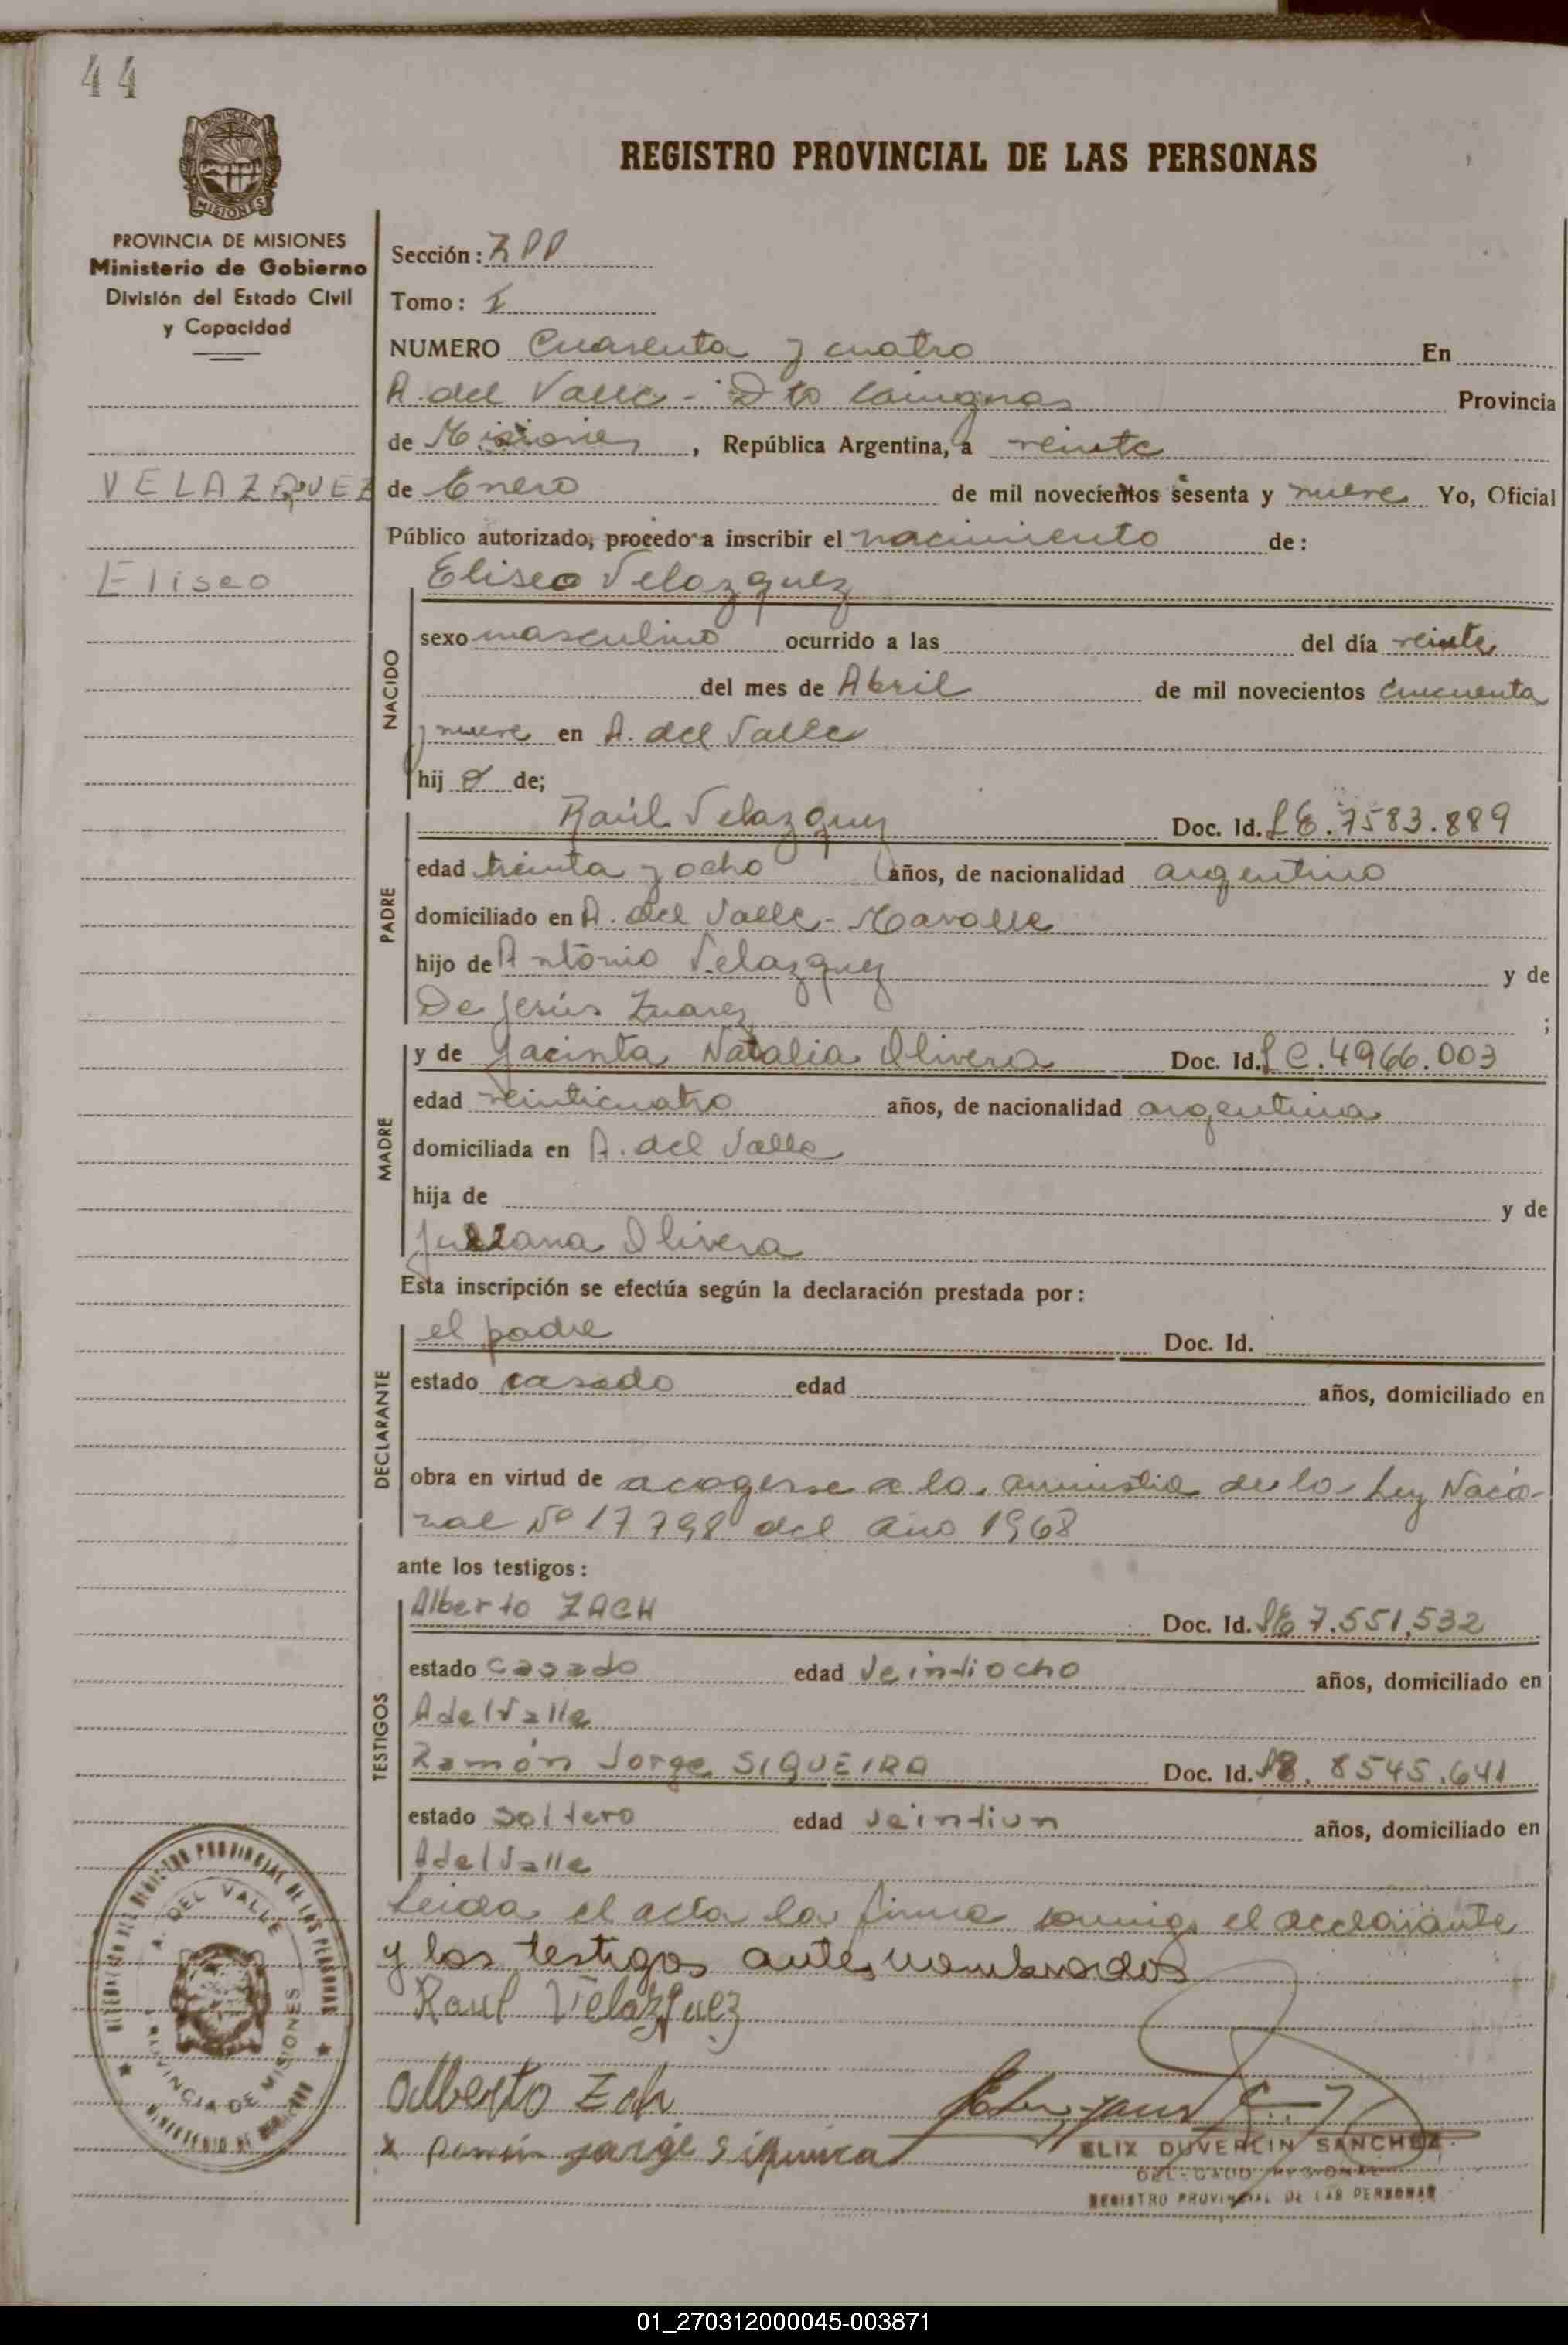 44
PROVINCIA DE
MISIONES
REGISTRO PROVINCIAL DE LAS PERSONAS
PROVINCIA DE MISIONES
Ministerio de Gobierno
División del Estado Civil
y Capacidad
VELAZQUEZ
Eliseo
Sección:
Tomo: I
NUMERO Cuarenta y cuatro En
A. del Valle - Dto Cainguas Provincia
de Misiones, República Argentina, a veinte
de Enero de mil novecientos sesenta y nueve Yo, Oficial
Público autorizado, procedo a inscribir el nacimiento de:
Eliseo Velazquez
NACIDO
sexo masculino ocurrido a las del día veinte
del mes de Abril de mil novecientos cincuenta
y nueve en A. del Valle
hijo de;
PADRE
Raúl Velazquez Doc. Id. LE. 7583.889
edad treinta y ocho años, de nacionalidad argentino
domiciliado en A. del Valle -
hijo de Antonio Velazquez y de
De Jesús Zuarez ;
MADRE
y de Jacinta Natalia Olivera Doc. Id. LC. 4966.003
edad veinticuatro años, de nacionalidad argentina
domiciliada en A. del Valle
hija de y de
Juliana Olivera
Esta inscripción se efectúa según la declaración prestada por:
DECLARANTE
el padre Doc. Id.
estado casado edad años, domiciliado en
obra en virtud de acogerse a la amnistia de la Ley Nacio-
nal Nº 17798 del año 1968
ante los testigos:
TESTIGOS
Alberto ZACH Doc. Id. LE 7.551.532
estado casado edad Veintiocho años, domiciliado en
A del Valle
Ramón Jorge SIQUEIRA Doc. Id. 8545.641
estado soltero edad Veintiun años, domiciliado en
A del Valle
Leida el acta la firma conmigo el declarante
y los testigos antes nombrados
Raul Velazquez
Alberto Zch
x Ramón Jorge Siqueira
ELIX DUVERLIN SANCHEZ
DELEGADO REGIONAL
REGISTRO PROVINCIAL DE LAS PERSONAS
DEL REGISTRO PROVINCIAL DE LAS PERSONAS
A. DEL VALLE
PROVINCIA DE MISIONES
MINISTERIO DE GOBIERNO
01_270312000045-003871